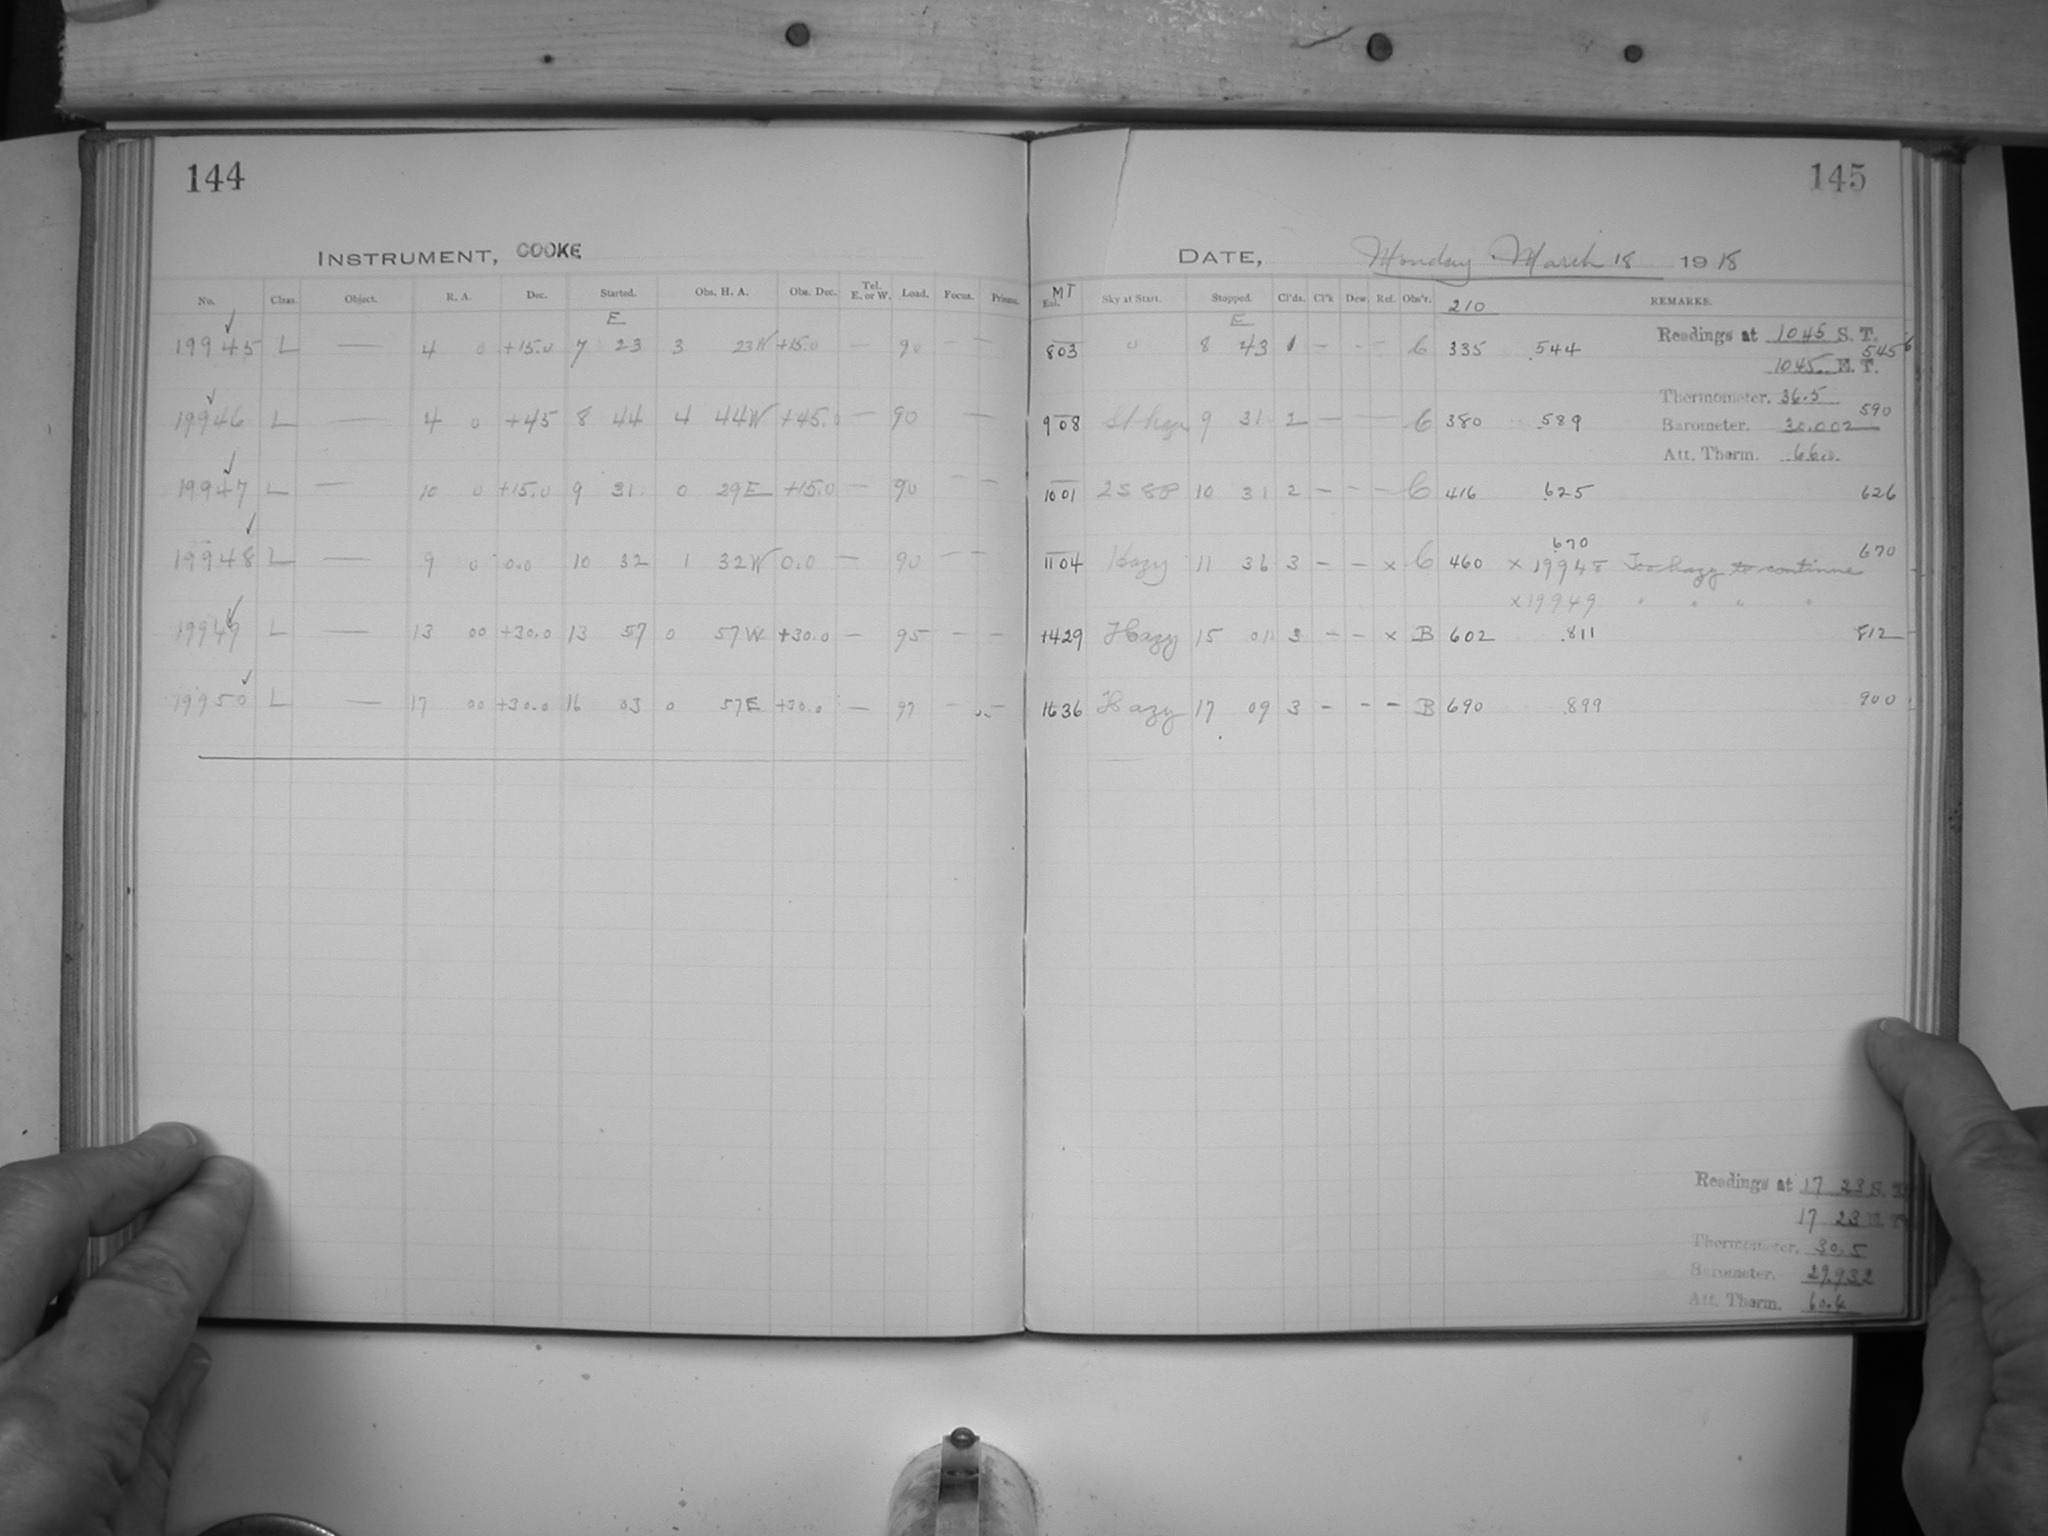 144
INSTRUMENT, COOKE
No. Class. Object. R. A. Dec. Started. Obs. H. A. Obs. Dec. Tel. E. or W. Load. Focus. Prisms.
E
19945 L — 4 0 +15.0 7 23 3 23W +15.0 — 90 — —
19946 L — 4 0 +45 8 44 4 44W +45.0 — 90 —
19947 L — 10 0 +15.0 9 31 0 29E +15.0 — 90 — —
19948 L — 9 0 0.0 10 32 1 32W 0.0 — 90 — —
19949 L — 13 00 +30.0 13 57 0 57W +30.0 — 95 — —
19950 L — 17 00 +30.0 16 03 0 57E +30.0 — 97 — —
145
DATE, Monday March 18 1918
MT Sky at Start. Stopped. Cl'ds. Cl'k Dew. Ref. Obs'r. 210 REMARKS.
E
803 0 8 43 1 — — — C 335 .544 545
908 Sl haze 9 31 2 — — — C 380 .589 590
1001 2S 8P 10 31 2 — — — C 416 .625 626
1104 Hazy 11 36 3 — — x C 460 .670 x 19948 Too hazy to continue 670
x 19949 " " " "
1429 Hazy 15 01 3 — — x B 602 .811 812
1636 Hazy 17 09 3 — — — B 690 .899 900
Readings at 1045 S. T.
1045 E. T.
Thermometer. 36.5
Barometer. 30.002
Att. Therm.
Readings at 17 23 S. T.
17 23 E. T.
Thermometer. 30.5
Barometer. 29.932
Att. Therm. 60.4